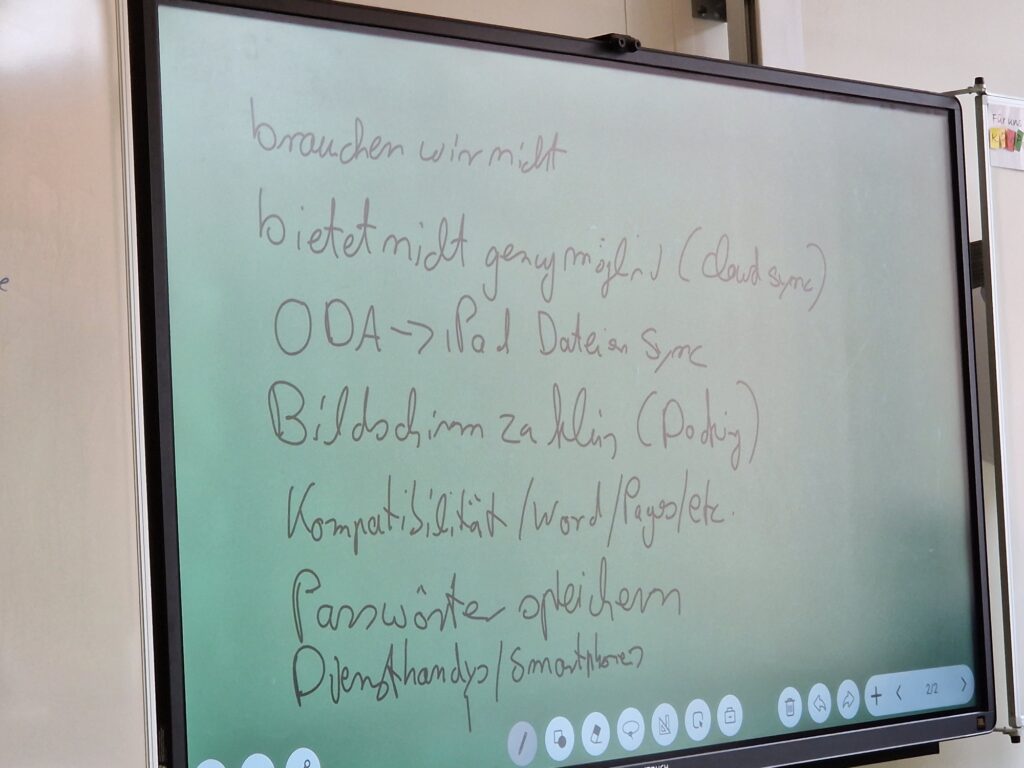 brauchen wir nicht
bietet nicht genug möglich (Cloud sync)
ODA → iPad Dateien Sync
Bildschirm zu klein (Docking)
Kompatibilität /Word/Pages/etc.
Passwörter speichern
Diensthandys/Smartphones
2/2
Für uns